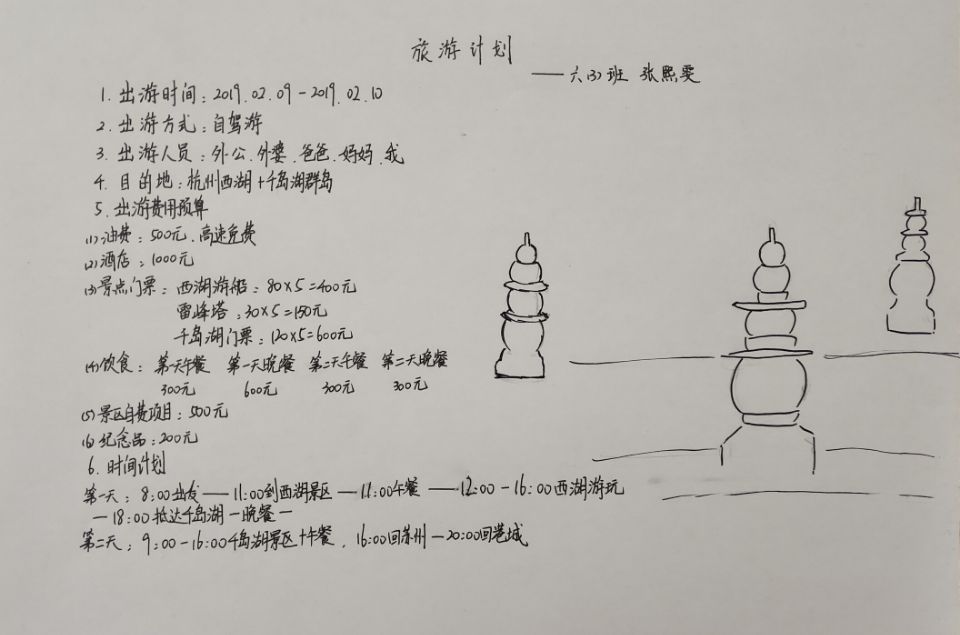 旅游计划
——六(3)班 张熙雯
1. 出游时间：2019.02.09-2019.02.10
2. 出游方式：自驾游
3. 出游人员：外公、外婆、爸爸、妈妈、我
4. 目的地：杭州西湖+千岛湖群岛
5. 出游费用预算
(1)油费：500元、高速免费
(2)酒店：1000元
(3)景点门票：西湖游船：80×5=400元
雷峰塔：30×5=150元
千岛湖门票：120×5=600元
(4)饮食：第一天午餐 第一天晚餐 第二天午餐 第二天晚餐
300元 600元 300元 300元
(5)景区自费项目：500元
(6)纪念品：200元
6. 时间计划
第一天：8:00出发——11:00到西湖景区—11:00午餐——12:00-16:00西湖游玩
—18:00抵达千岛湖—晚餐—
第二天：9:00-16:00千岛湖景区+午餐，16:00回苏州—20:00回港城